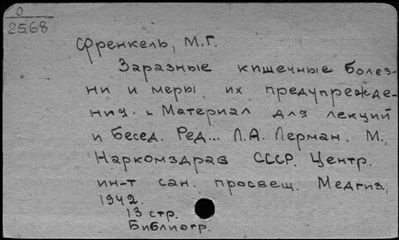 0
2568
Френкель, М.Г.
Заразные кишечные болез-
ни и меры их предупрежде-
ния. Материал для лекций
и бесед. Ред... Л.А. Лерман. М.,
Наркомздрав СССР. Центр.
ин-т сан. просвещ. Медгиз,
1942.
13 стр.
Библиогр.